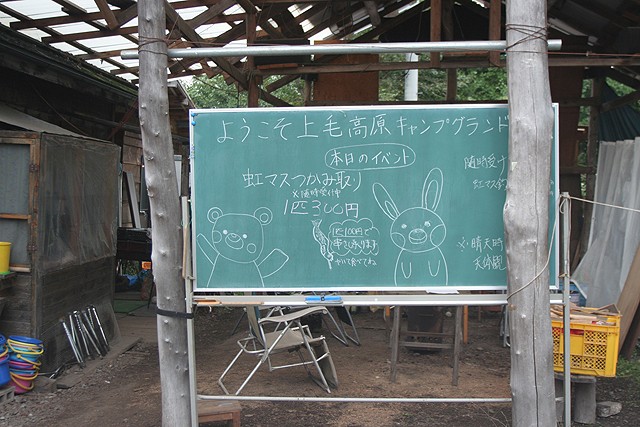 ようこそ上毛高原キャンプグランド
本日のイベント
虹マスつかみ取り
※随時受付中
1匹300円
1匹100円で
串さし承ります
やいて食べてね
随時受付
虹マス釣
※晴天時
天体観